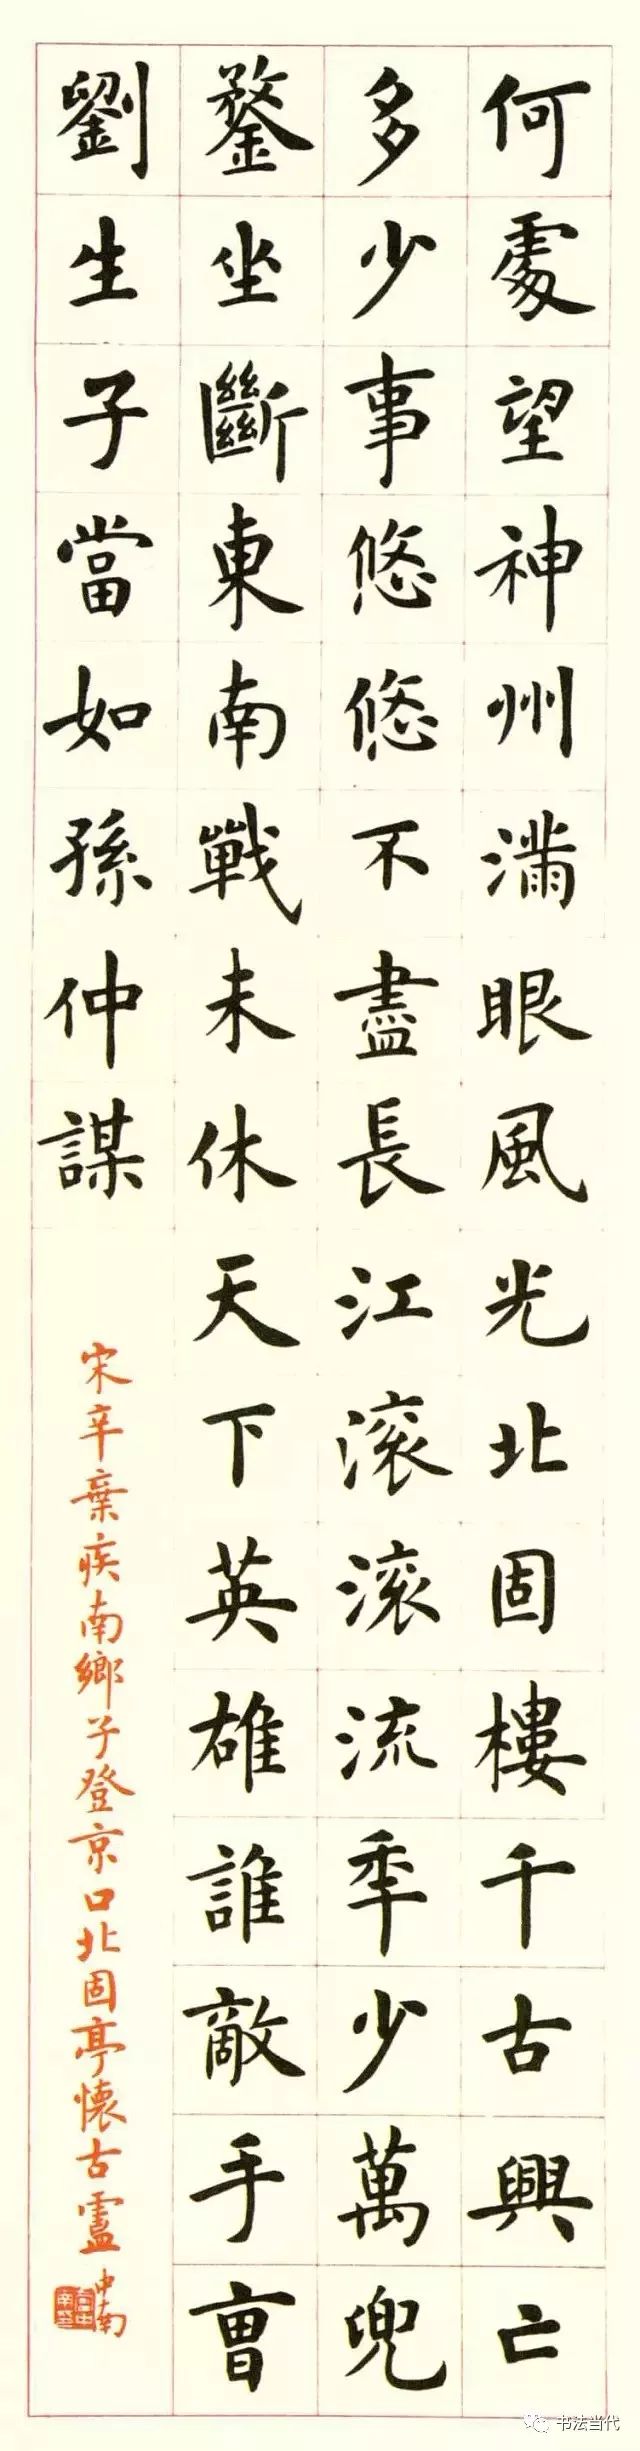 何處望神州滿眼風光北固樓千古興亡
多少事悠悠不盡長江滾滾流年少萬兜
鍪坐斷東南戰未休天下英雄誰敵手曹
劉生子當如孫仲謀
宋辛棄疾南鄉子登京口北固亭懷古盧
中南
书法当代